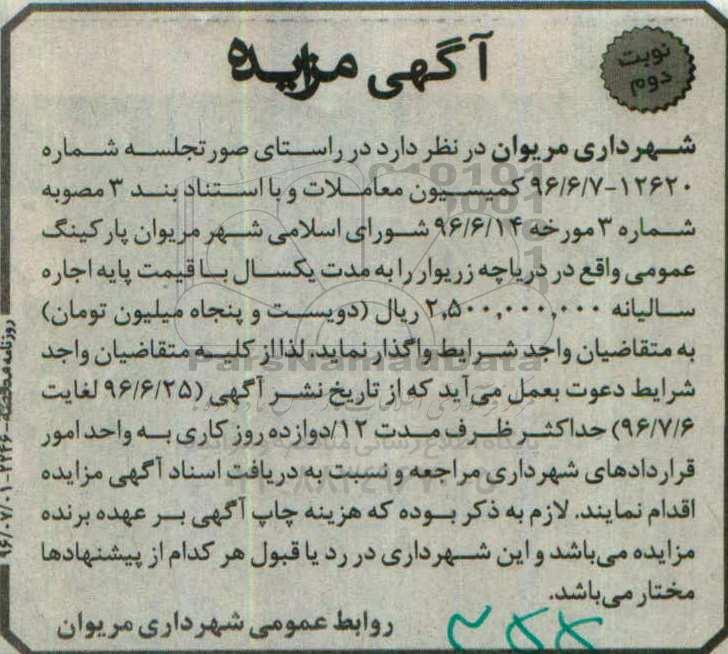 آگهی مزایده
نوبت
دوم
شهرداری مریوان در نظر دارد در راستای صورتجلسه شماره
۱۲۶۲۰-۹۶/۶/۷ کمیسیون معاملات و با استناد بند ۳ مصوبه
شماره ۳ مورخه ۹۶/۶/۱۴ شورای اسلامی شهر مریوان پارکینگ
عمومی واقع در دریاچه زریوار را به مدت یکسال با قیمت پایه اجاره
سالیانه ۲,۵۰۰,۰۰۰,۰۰۰ ریال (دویست و پنجاه میلیون تومان)
به متقاضیان واجد شرایط واگذار نماید. لذا از کلیه متقاضیان واجد
شرایط دعوت بعمل می‌آید که از تاریخ نشر آگهی (۹۶/۶/۲۵ لغایت
۹۶/۷/۶) حداکثر ظرف مدت ۱۲/دوازده روز کاری به واحد امور
قراردادهای شهرداری مراجعه و نسبت به دریافت اسناد آگهی مزایده
اقدام نمایند. لازم به ذکر بوده که هزینه چاپ آگهی بر عهده برنده
مزایده می‌باشد و این شهرداری در رد یا قبول هر کدام از پیشنهادها
مختار می‌باشد.
روابط عمومی شهرداری مریوان
ParsNamadData
روزنامه
۲۲۴۶-۹۶/۰۷/۰۱